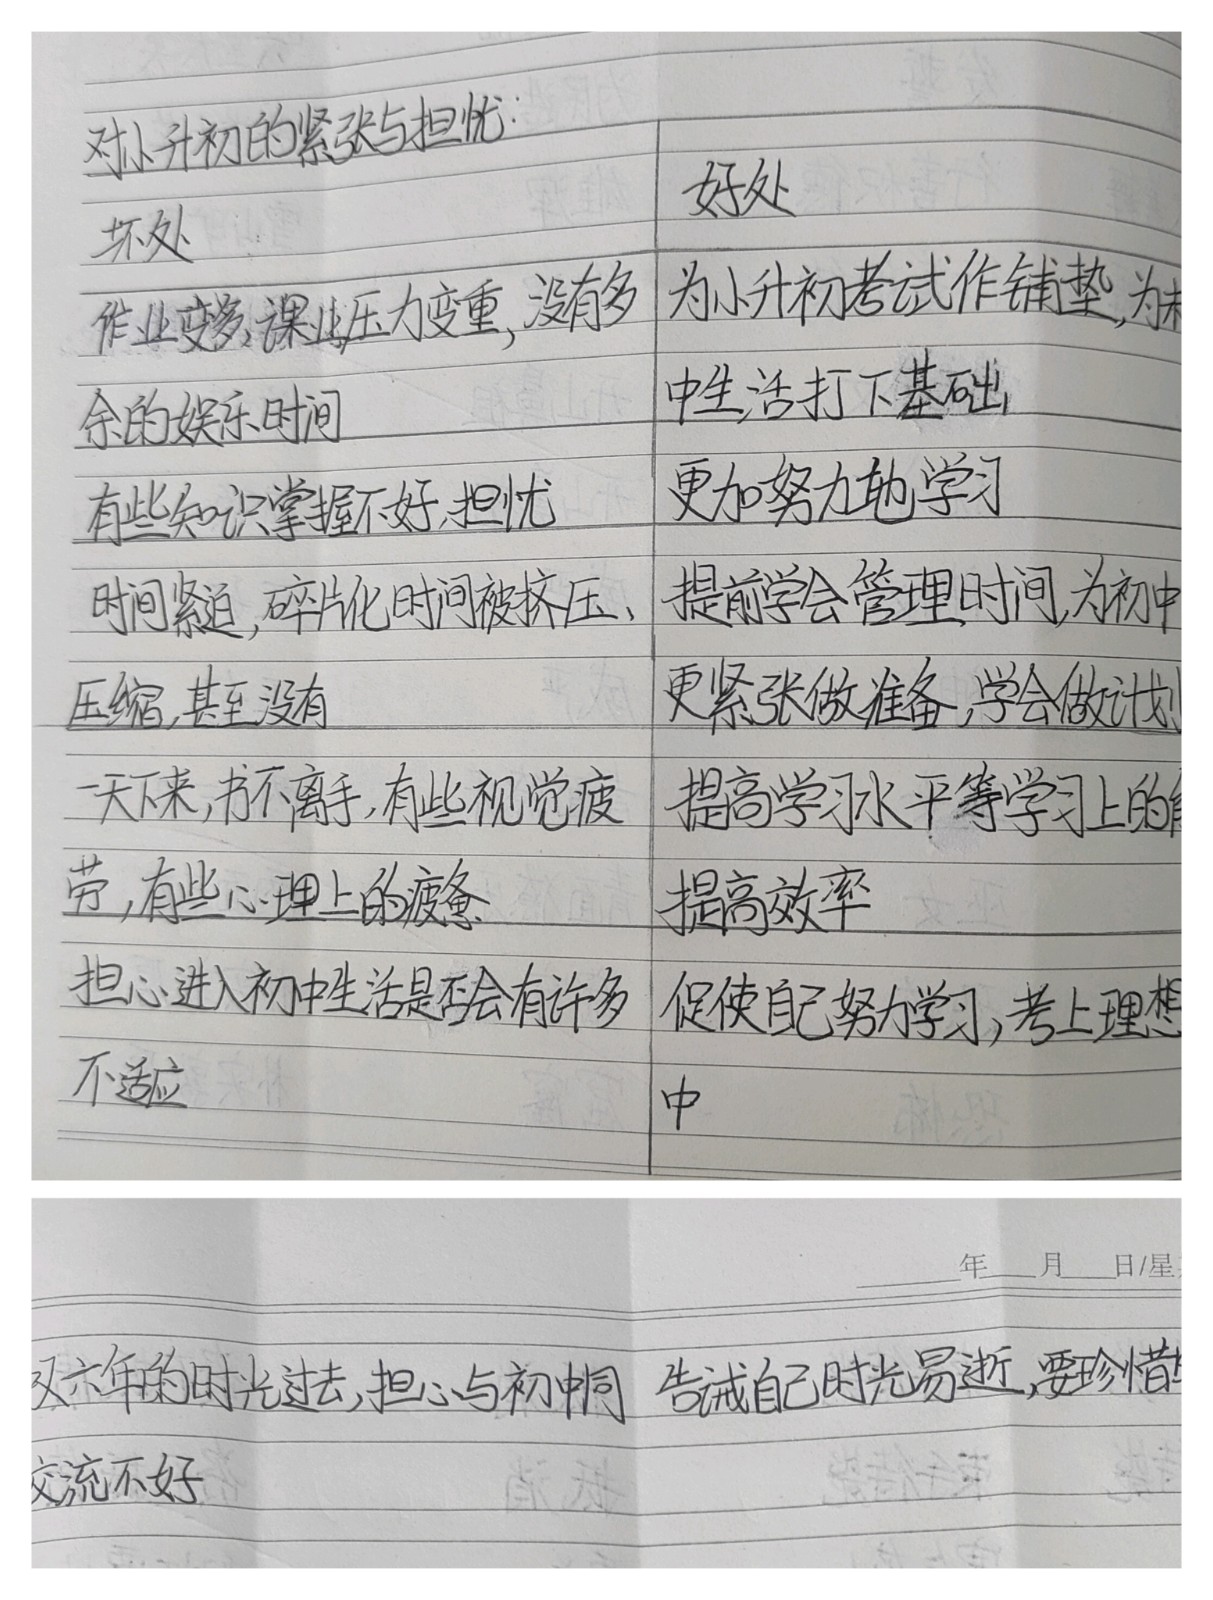 对小升初的紧张与担忧:
坏处
作业变多,课业压力变重,没有多
余的娱乐时间
有些知识掌握不好,担忧
时间紧迫,碎片化时间被挤压、
压缩,甚至没有
一天下来,书不离手,有些视觉疲
劳,有些心理上的疲惫
担心进入初中生活是否会有许多
不适应
好处
为小升初考试作铺垫,为
中生活打下基础
更加努力地学习
提前学会管理时间,为初中
更紧张做准备,学会做计划
提高学习水平等学习上的
提高效率
促使自己努力学习,考上理想
中
年 月 日/星
六年的时光过去,担心与初中同
交流不好
告诫自己时光易逝,要珍惜